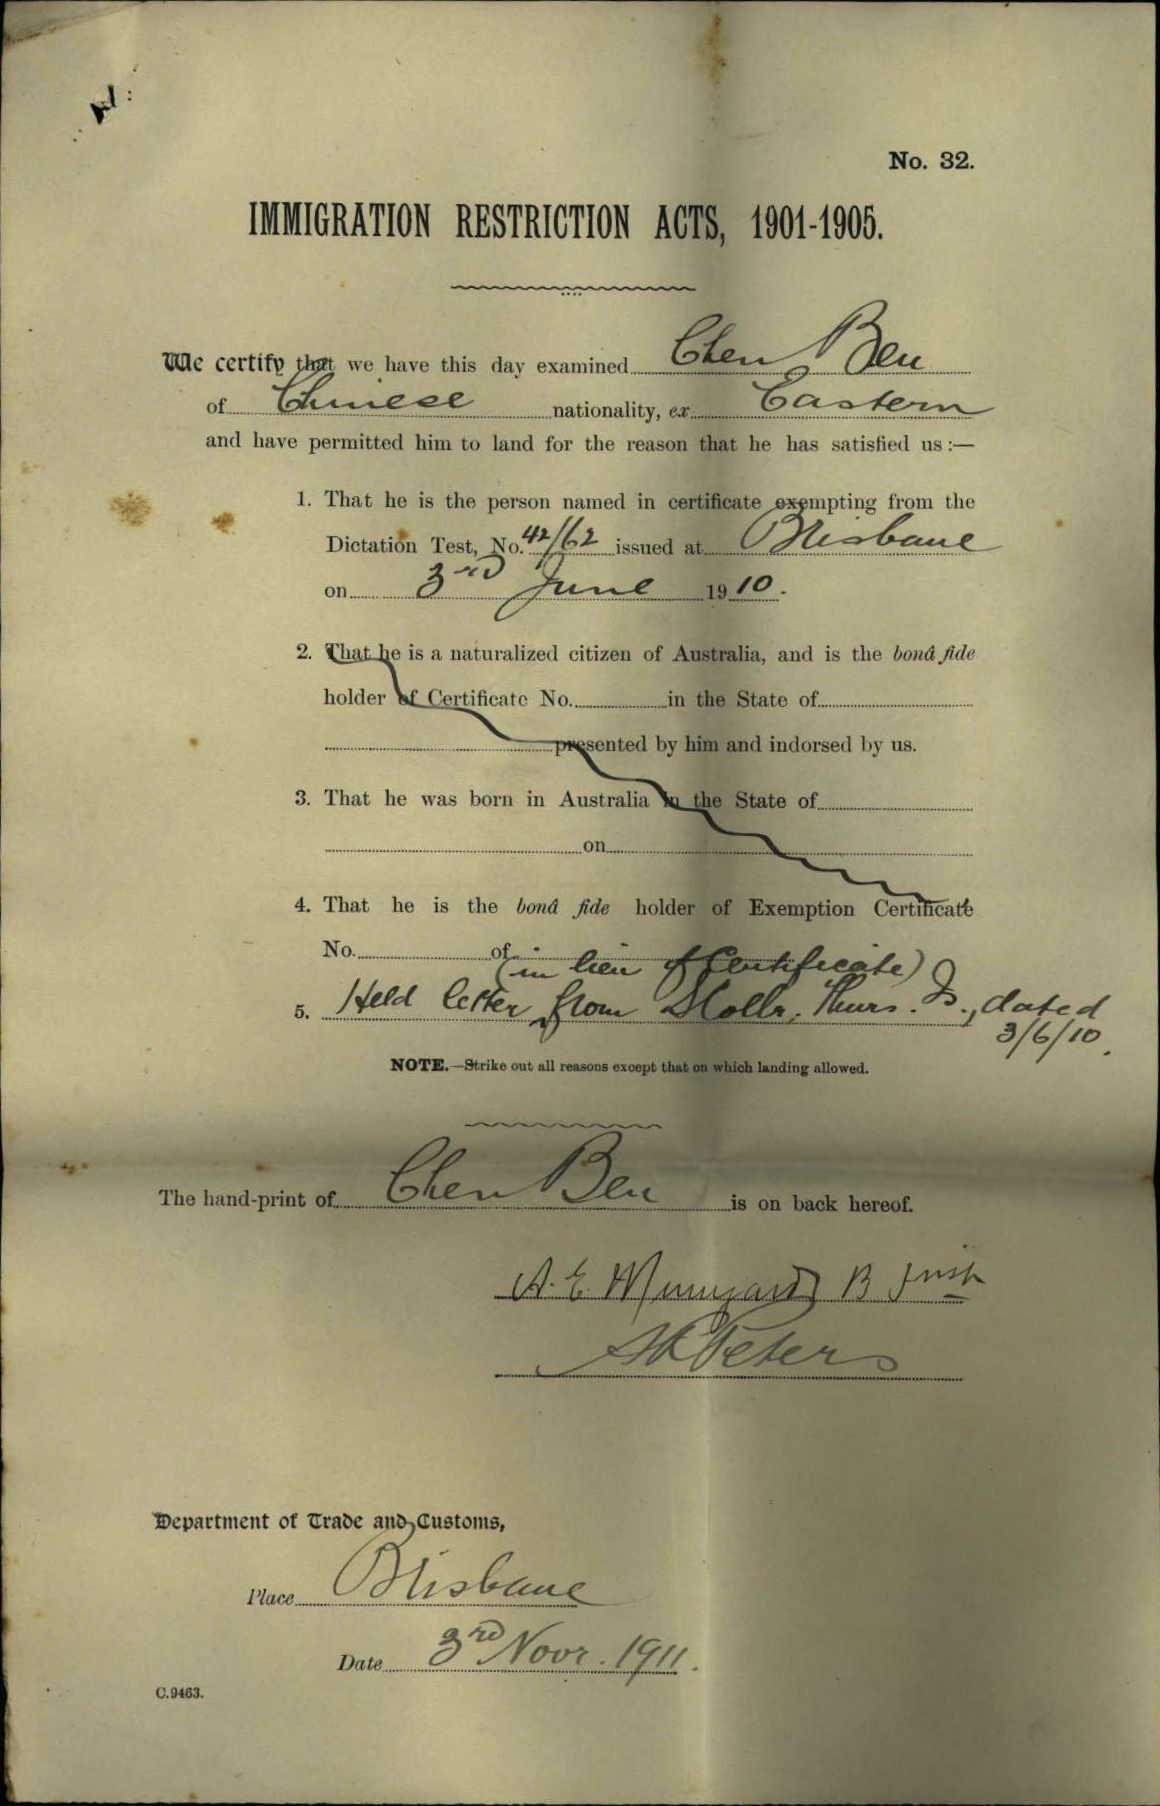 No. 32.
IMMIGRATION RESTRICTION ACTS, 1901-1905.
We certify that we have this day examined Chen Ben
of Chinese nationality, ex Eastern
and have permitted him to land for the reason that he has satisfied us :—
1. That he is the person named in certificate exempting from the
Dictation Test, No. 42/62 issued at Brisbane
on 3rd June 1910.
2. That he is a naturalized citizen of Australia, and is the bonâ fide
holder of Certificate No. in the State of
presented by him and indorsed by us.
3. That he was born in Australia in the State of
on
4. That he is the bonâ fide holder of Exemption Certificate
No. of
(in lieu of Certificate)
5. Held letter from Thurs. Is., dated
3/6/10.
NOTE.—Strike out all reasons except that on which landing allowed.
The hand-print of Chen Ben is on back hereof.
A. E.
Peters
Department of Trade and Customs,
Place Brisbane
Date 3rd Novr. 1911.
C.9463.